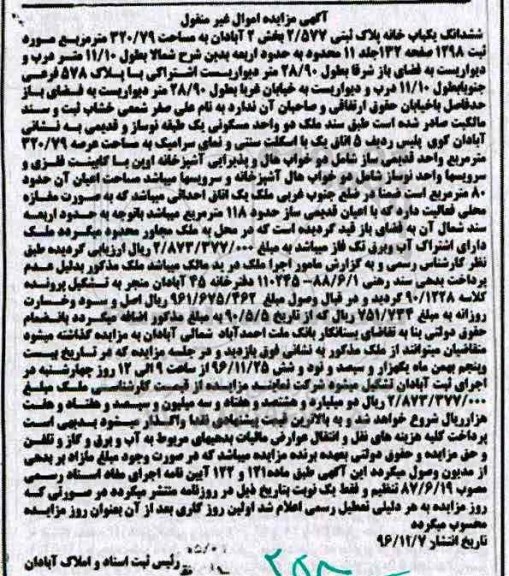 آگهی مزایده اموال غیر منقول
ششدانگ یکباب خانه پلاک ثبتی ۲/۵۷۷ بخش ۲ آبادان به مساحت ۳۲۰/۷۹ مترمربع مورد
ثبت ۱۲۹۸ صفحه ۱۳۲ جلد ۱۱ محدود به حدود اربعه بدین شرح شمالا بطول ۱۱/۱۰ متر درب و
دیواریست به فضای باز شرقا بطول ۲۸/۹۰ متر دیواریست اشتراکی با پلاک ۵۷۸ فرعی
جنوبا بطول ۱۱/۱۰ درب و دیواریست به خیابان غربا بطول ۲۸/۹۰ متر دیواریست به فضای باز
حدفاصل باخیابان حقوق ارتفاقی و صاحبان آن ندارد به نام علی صفر شمعی خشاب ثبت و سند
مالکیت صادر شده است طبق سند ملک دو واحد مسکونی یک طبقه نوساز و قدیمی به نشانی
آبادان کوی پلیس ردیف ۵ اتاق یک با اسکلت سنتی و نمای سرامیک به مساحت عرصه ۳۲۰/۷۹
مترمربع واحد قدیمی ساز شامل دو خواب هال و پذیرایی آشپزخانه اوپن با کابینت فلزی و
سرویسها واحد نوساز شامل دو خواب هال آشپزخانه و سرویسها میباشد مساحت اعیان آن حدود
۸۰ مترمربع است ضمنا در ضلع جنوب غربی ملک یک اتاق احداثی میباشد که به صورت مغازه
محلی فعالیت دارد که با اعیان قدیمی ساز حدود ۱۱۸ مترمربع میباشد باتوجه به حدود اربعه
سند شمال آن به فضای باز قید گردیده است که در محل به ملک مجاور محدود میگردد ملک
دارای اشتراک آب وبرق تک فاز میباشد به مبلغ ۲/۸۷۳/۳۷۷/۰۰۰ ریال ارزیابی گردیده طبق
نظر کارشناس رسمی و به گزارش مامور اجرا ملک در ید مالک میباشد ملک مذکور بدلیل عدم
پرداخت بدهی سند رهنی ۸۸/۶/۱-۱۱۰۲۳۵ دفترخانه ۴۵ آبادان منجر به تشکیل پرونده
کلاسه ۹۰/۱۳۲۸ گردید و در قبال وصول مبلغ ۹۶۱/۶۷۵/۴۶۳ ریال اصل و سود وخسارت
روزانه به مبلغ ۷۵۱/۷۳۴ ریال که از تاریخ ۹۰/۵/۵ به مبلغ مذکور اضافه میگردد بانضمام
حقوق دولتی بنا به تقاضای بستانکار بانک ملت احمدآباد شمالی آبادان به مزایده گذاشته میشود
متقاضیان میتوانند از ملک مذکور به نشانی فوق بازدید و در جلسه مزایده که در تاریخ بیست
وپنجم بهمن ماه یکهزار و سیصد و نود و شش ۹۶/۱۱/۲۵ از ساعت ۹ الی ۱۲ روز چهارشنبه در
اجرای ثبت آبادان تشکیل میشود شرکت نمایند مزایده از قیمت کارشناسی ملک مبلغ
۲/۸۷۳/۳۷۷/۰۰۰ ریال دو میلیارد و هشتصد و هفتاد و سه میلیون و سیصد و هفتاد و هفت
هزارریال شروع خواهد شد و به بالاترین قیمت پیشنهادی نقدا واگذار میشود بدیهی است
پرداخت کلیه هزینه های نقل و انتقال عوارض مالیات بدهیهای مربوط به آب و برق و گاز و تلفن
و حق مزایده و حقوق دولتی بعهده برنده مزایده میباشد که در صورت وجود مبلغ مازاد بر بدهی
از مدیون وصول میگردد این آگهی طبق ماده ۱۲۱ و ۱۲۲ آیین نامه اجرای مفاد اسناد رسمی
مصوب ۸۷/۶/۱۹ تنظیم و فقط یک نوبت بتاریخ ذیل در روزنامه منتشر میگردد در صورتی که
روز مزایده به هر دلیلی تعطیل رسمی اعلام شد اولین روز کاری بعد از آن بعنوان روز مزایده
محسوب میگردد
تاریخ انتشار ۹۶/۱۱/۷
رئیس ثبت اسناد و املاک آبادان